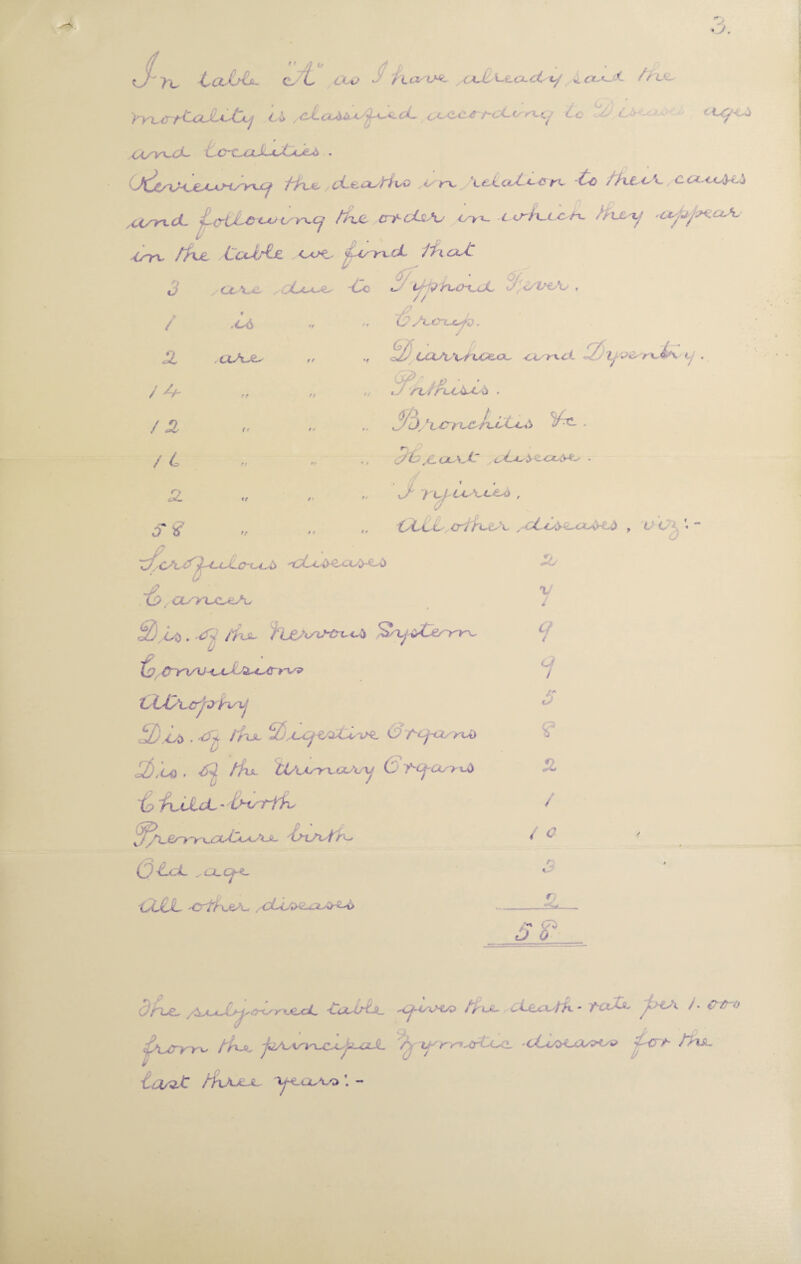 3.
In table "A" as I have already said the
mortality is classified according to Diseases ages
and localities.
Reviewing the deaths in relation to their causes
and following the order in which they appear
in the table we find that
3 are due to Typhoid Fever.
1 is " " Croup.
2 are " " Diarrhoea and Dysentery.
14 " " " Phthisis.
12 " " " Bronchitis &c.
16 " " " Heart disease.
2 " " " Injuries,
58 " " " All other diseases, viz: -
Scrofulous diseases 2
Cancer 7
Dis. of the Nervous System 9
Convulsions 9
Atrophy 5
Dis. of the Digestive Organs 8
Dis. of the Urinary Organs 2
Child-birth 1
Premature birth 10
Old age 3
All other diseases 2
58
The subjoined table gives the death-rate per 1.000
from the principal Zymotic diseases for the
last three years: -